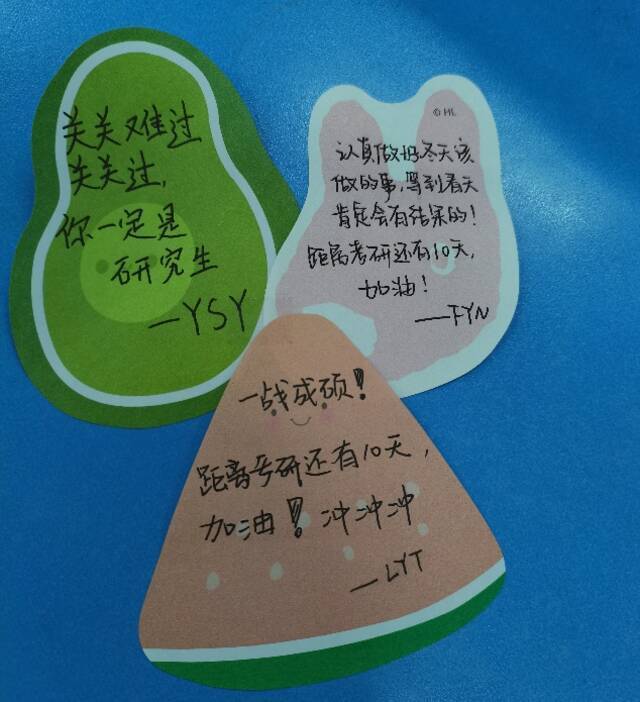 关关难过
关关过,
你一定是
研究生
—YSY
© HL
认真做好冬天该
做的事,等到春天
肯定会有结果的!
距离考研还有10天,
加油!
——FYN
一战成硕!
距离考研还有10天,
加油!冲冲冲
—LYT